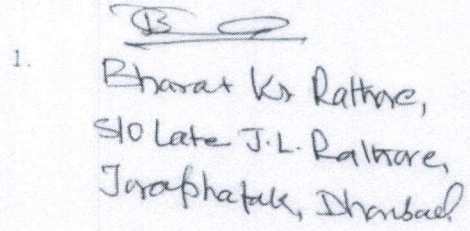 1.
Bharat Kr Rathore,
S/O Late J.L. Rathore,
Joraphatak, Dhanbad